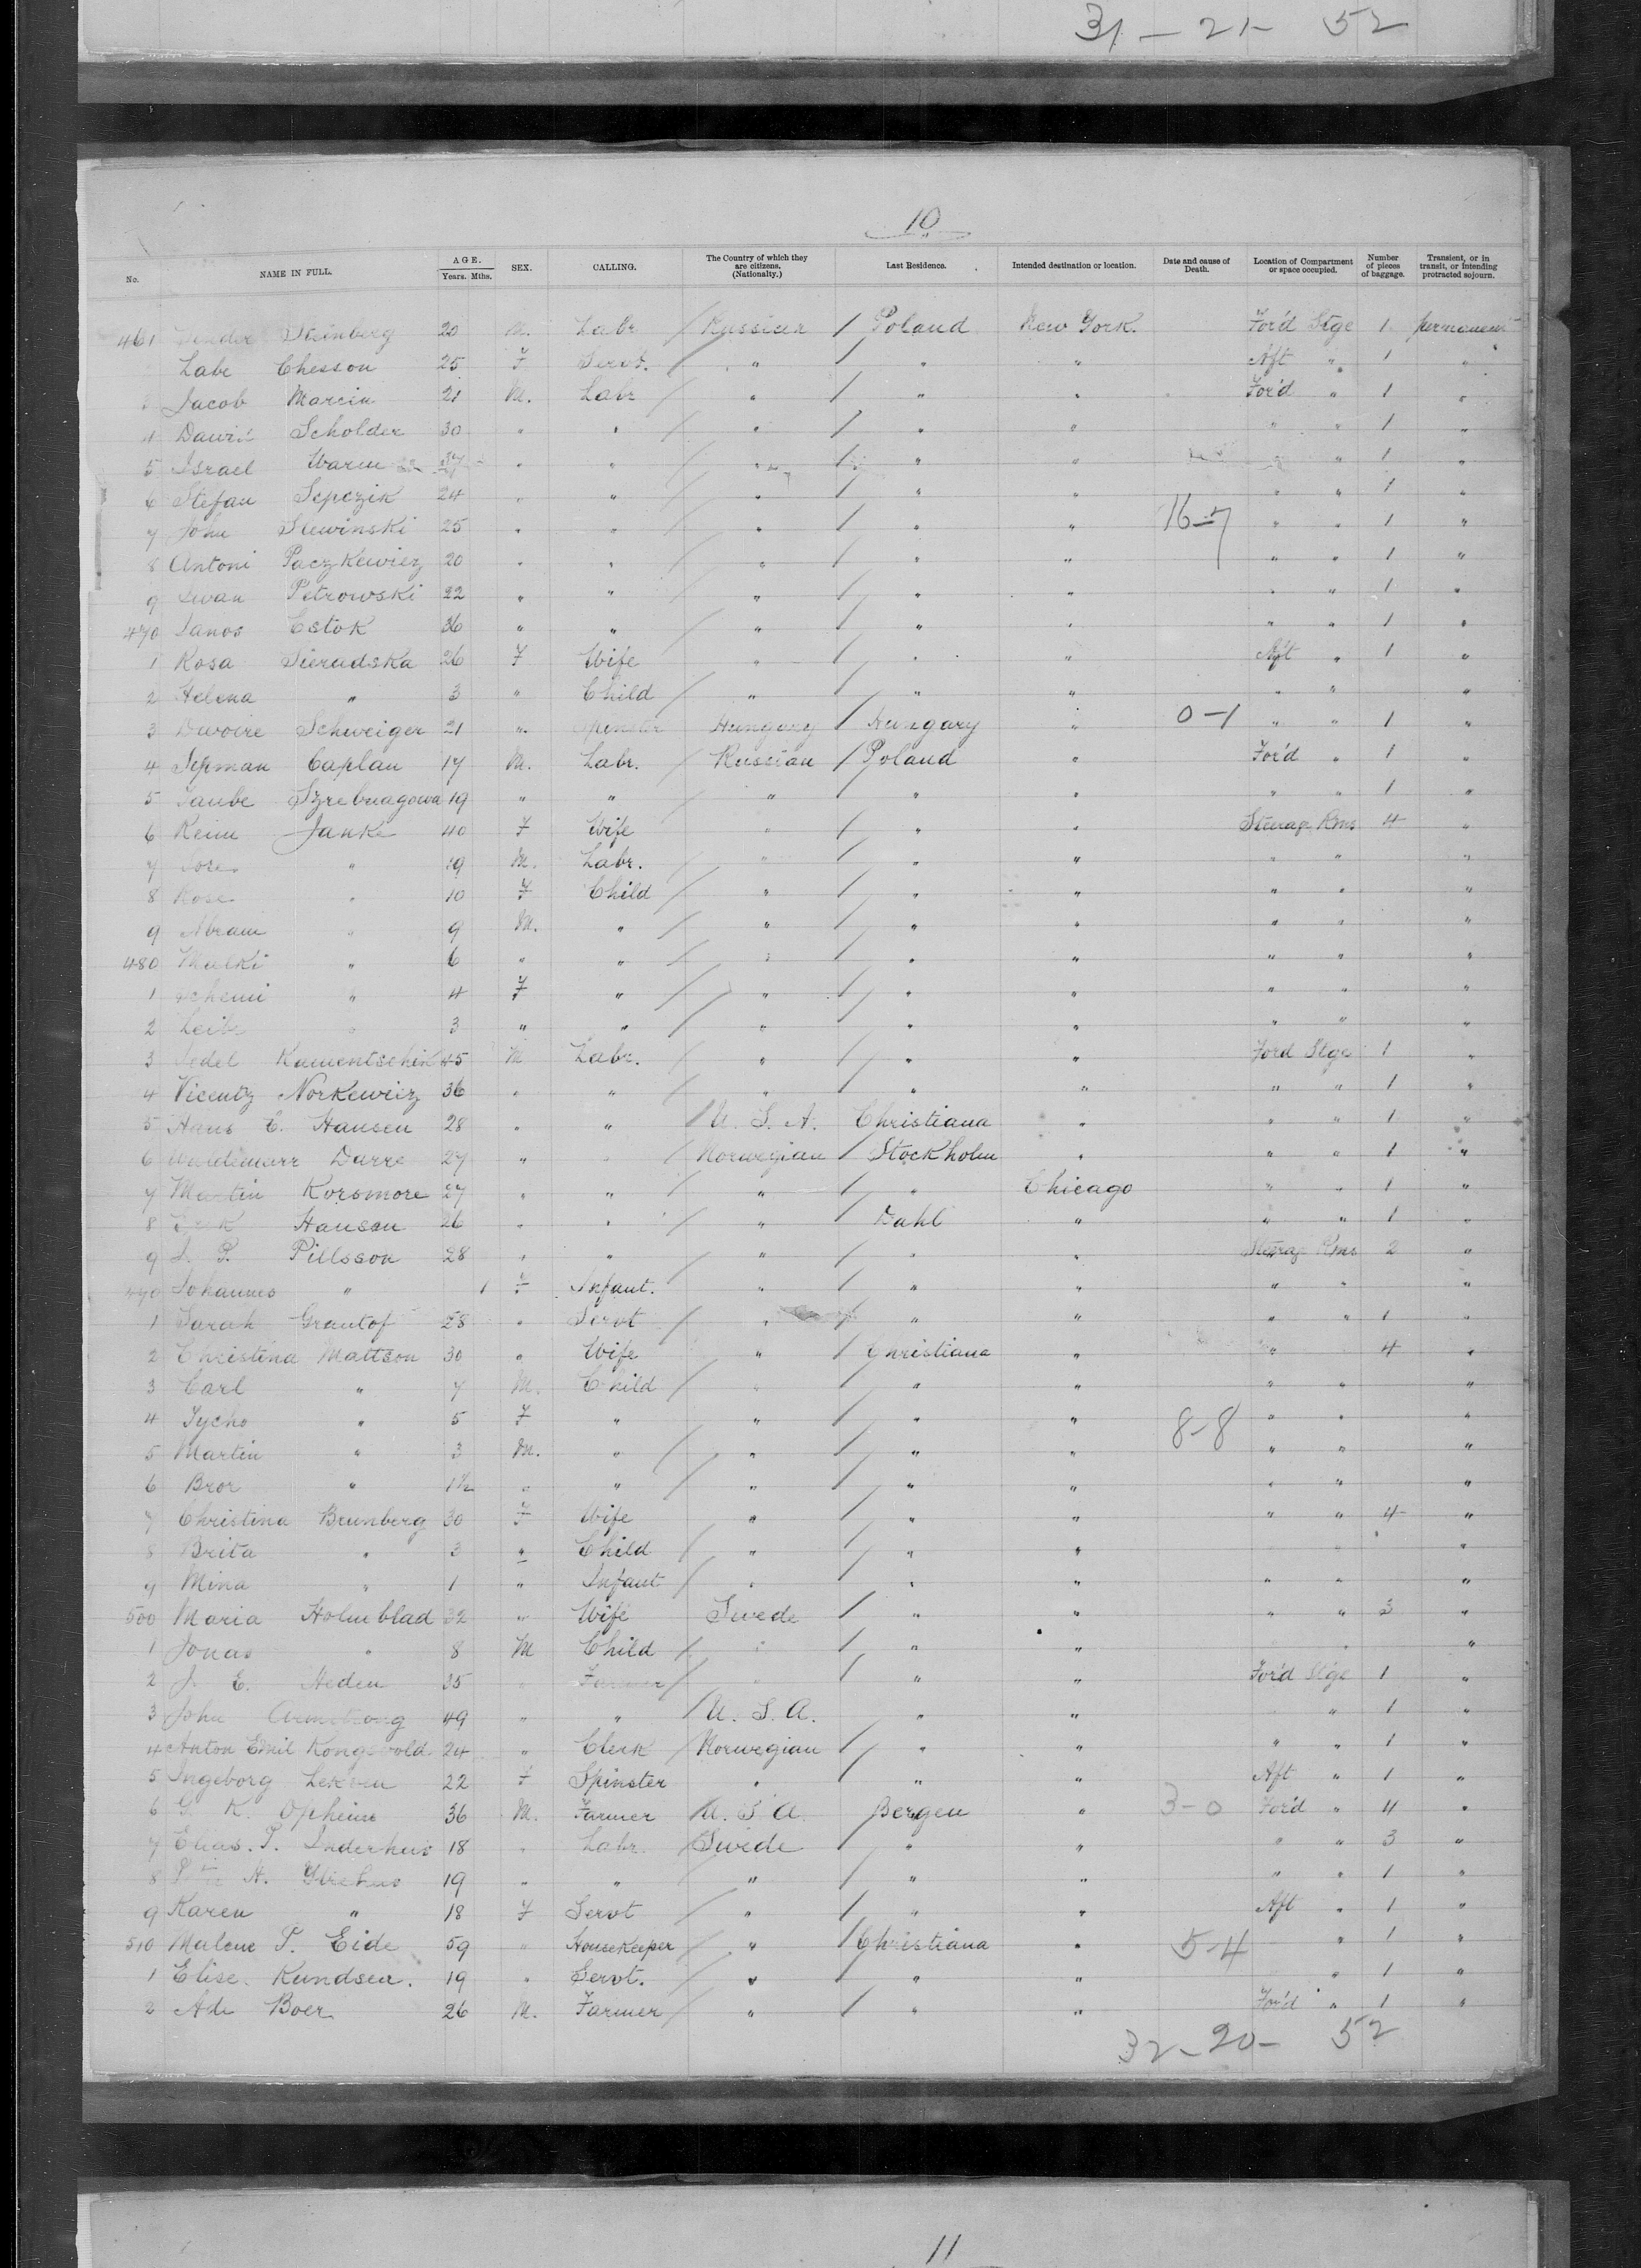 31 - 21 - 52
10
No. NAME IN FULL. AGE. Years. Mths. SEX. CALLING. The Country of which they are citizens. (Nationalty.) Last Residence. Intended destination or location. Date and cause of Death. Location of Compartment or space occupied. Number of pieces of baggage. Transient, or in transit, or intending protracted sojourn.
461 Steinberg 20 M. Labr / Russian / Poland New York. For'd Stge 1 permanent
Labe Chesson 25 F Servt. " / " " Aft " 1 "
Jacob Marcin 21 M. Labr / " / " " For'd " 1 "
4 Dawid Scholder 30 " " / " / " " " " 1 "
5 Israel Warm 37 " " / " / " " " 1 "
6 Stefan Sepczik 24 " " / " / " " " " 1 "
7 John Slewinski 25 " " / " / " " 16-7 " " 1 "
8 Antoni Paczkewicz 20 " " / " / " " " " 1 "
9 Iwan Petrowski 22 " " / " / " " " " 1 "
470 Janos Estok 36 " " / " / " " " " 1 "
1 Rosa Sieradska 26 F Wife " / " " Aft " 1 "
2 Helena " 3 " Child / " / " " " " "
3 Dwoire Schweiger 21 " Spinster Hungary / Hungary " 0-1 " " 1 "
4 Caplan 17 M. Labr. / Russian / Poland " For'd " 1 "
5 Taube Szrebnagowa 19 " " / " / " " " " 1 "
6 Keim Janke 40 F Wife " / " " Steerage Rms 4 "
7 " 19 M. Labr. / " / " " " " "
8 Rose " 10 F Child / " / " " " " "
9 Abram " 9 M. " / " / " " " " "
480 Malki " 6 " " / " / " " " " "
1 " 4 F " / " / " " " " "
2 Leibe " 3 " " / " / " " " " "
3 Kamentschik 45 M Labr. / " / " " Ford Stge 1 "
4 Vicentz Norkewicz 36 " " / " / " " " " 1 "
5 Hans C. Hansen 28 " " / U. S. A. Christiana " " " 1 "
6 Waldemarr Darre 27 " " / Norwegian / Stockholm " " " 1 "
7 Martin Korsmore 27 " " / " / " Chicago " " 1 "
8 Hansen 26 " " / " Dahl " " " 1 "
9 P. Pillsson 28 " " / " / " " Steerage Rms 2 "
490 Johannes " 1 F Infant. " / " " " " "
1 Sarah Grantof 28 " Servt / " / " " " " 1 "
2 Christina Mattson 30 " Wife " / Christiana " " 4 "
3 Carl " 7 M. Child / " / " " " " "
4 Tycho " 5 F " / " / " " 8-8 " " "
5 Martin " 3 M. " / " / " " " " "
6 Bror " 1½ " " / " / " " " " "
7 Christina Brunberg 30 F Wife " / " " " " 4 "
8 Brita " 3 " Child / " / " " " "
9 Mina " 1 " Infant / " / " " " " "
500 Maria Holmblad 32 " Wife Swede / " " " " 3 "
1 Jonas " 8 M Child / " / " " " "
2 J. E. Heden 35 " Farmer / " / " " For'd Stge 1 "
3 John Armstrong 49 " " / U. S. A. " " " 1 "
4 Anton Emil Kongsvold 24 " Clerk / Norwegian / " " " " 1 "
5 Ingeborg 22 F Spinster " / " " Aft " 1 "
6 G. K. Opheim 36 M. Farmer / U. S. A. Bergen " 3-0 For'd " 4 "
7 Elias. T. Inderhus 18 " Labr. / Swede " " " " 3 "
8 A. 19 " " / " / " " " " 1 "
9 Karen " 18 F Servt / " / " " Aft " 1 "
510 Malene T. Eide 59 " Housekeeper / " / Christiana " 5-4 " 1 "
1 Elise Kundsen. 19 " Servt. / " / " " " 1 "
2 Ade Boer 26 M. Farmer / " / " " For'd " 1 "
32 - 20 - 52
11